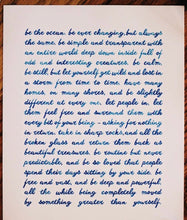 be the ocean. be ever changing, but always
the same. be simple and transparent with
an entire world deep down inside full of
odd and interesting creatures. be calm,
be still, but let yourself get wild and lost in
a storm from time to time. have many
homes, on many shores, and be slightly
different at every one. let people in. let
them feel free and surround them with
every bit of your being - asking for nothing
in return. take in sharp rocks, and all the
broken glass and return them back as
beautiful treasures. be routine but never
predictable, and be so loved that people
spend their days sitting by your side. be
free and vast, and be deep and powerful.
all the while being completely moved
by something greater than yourself.